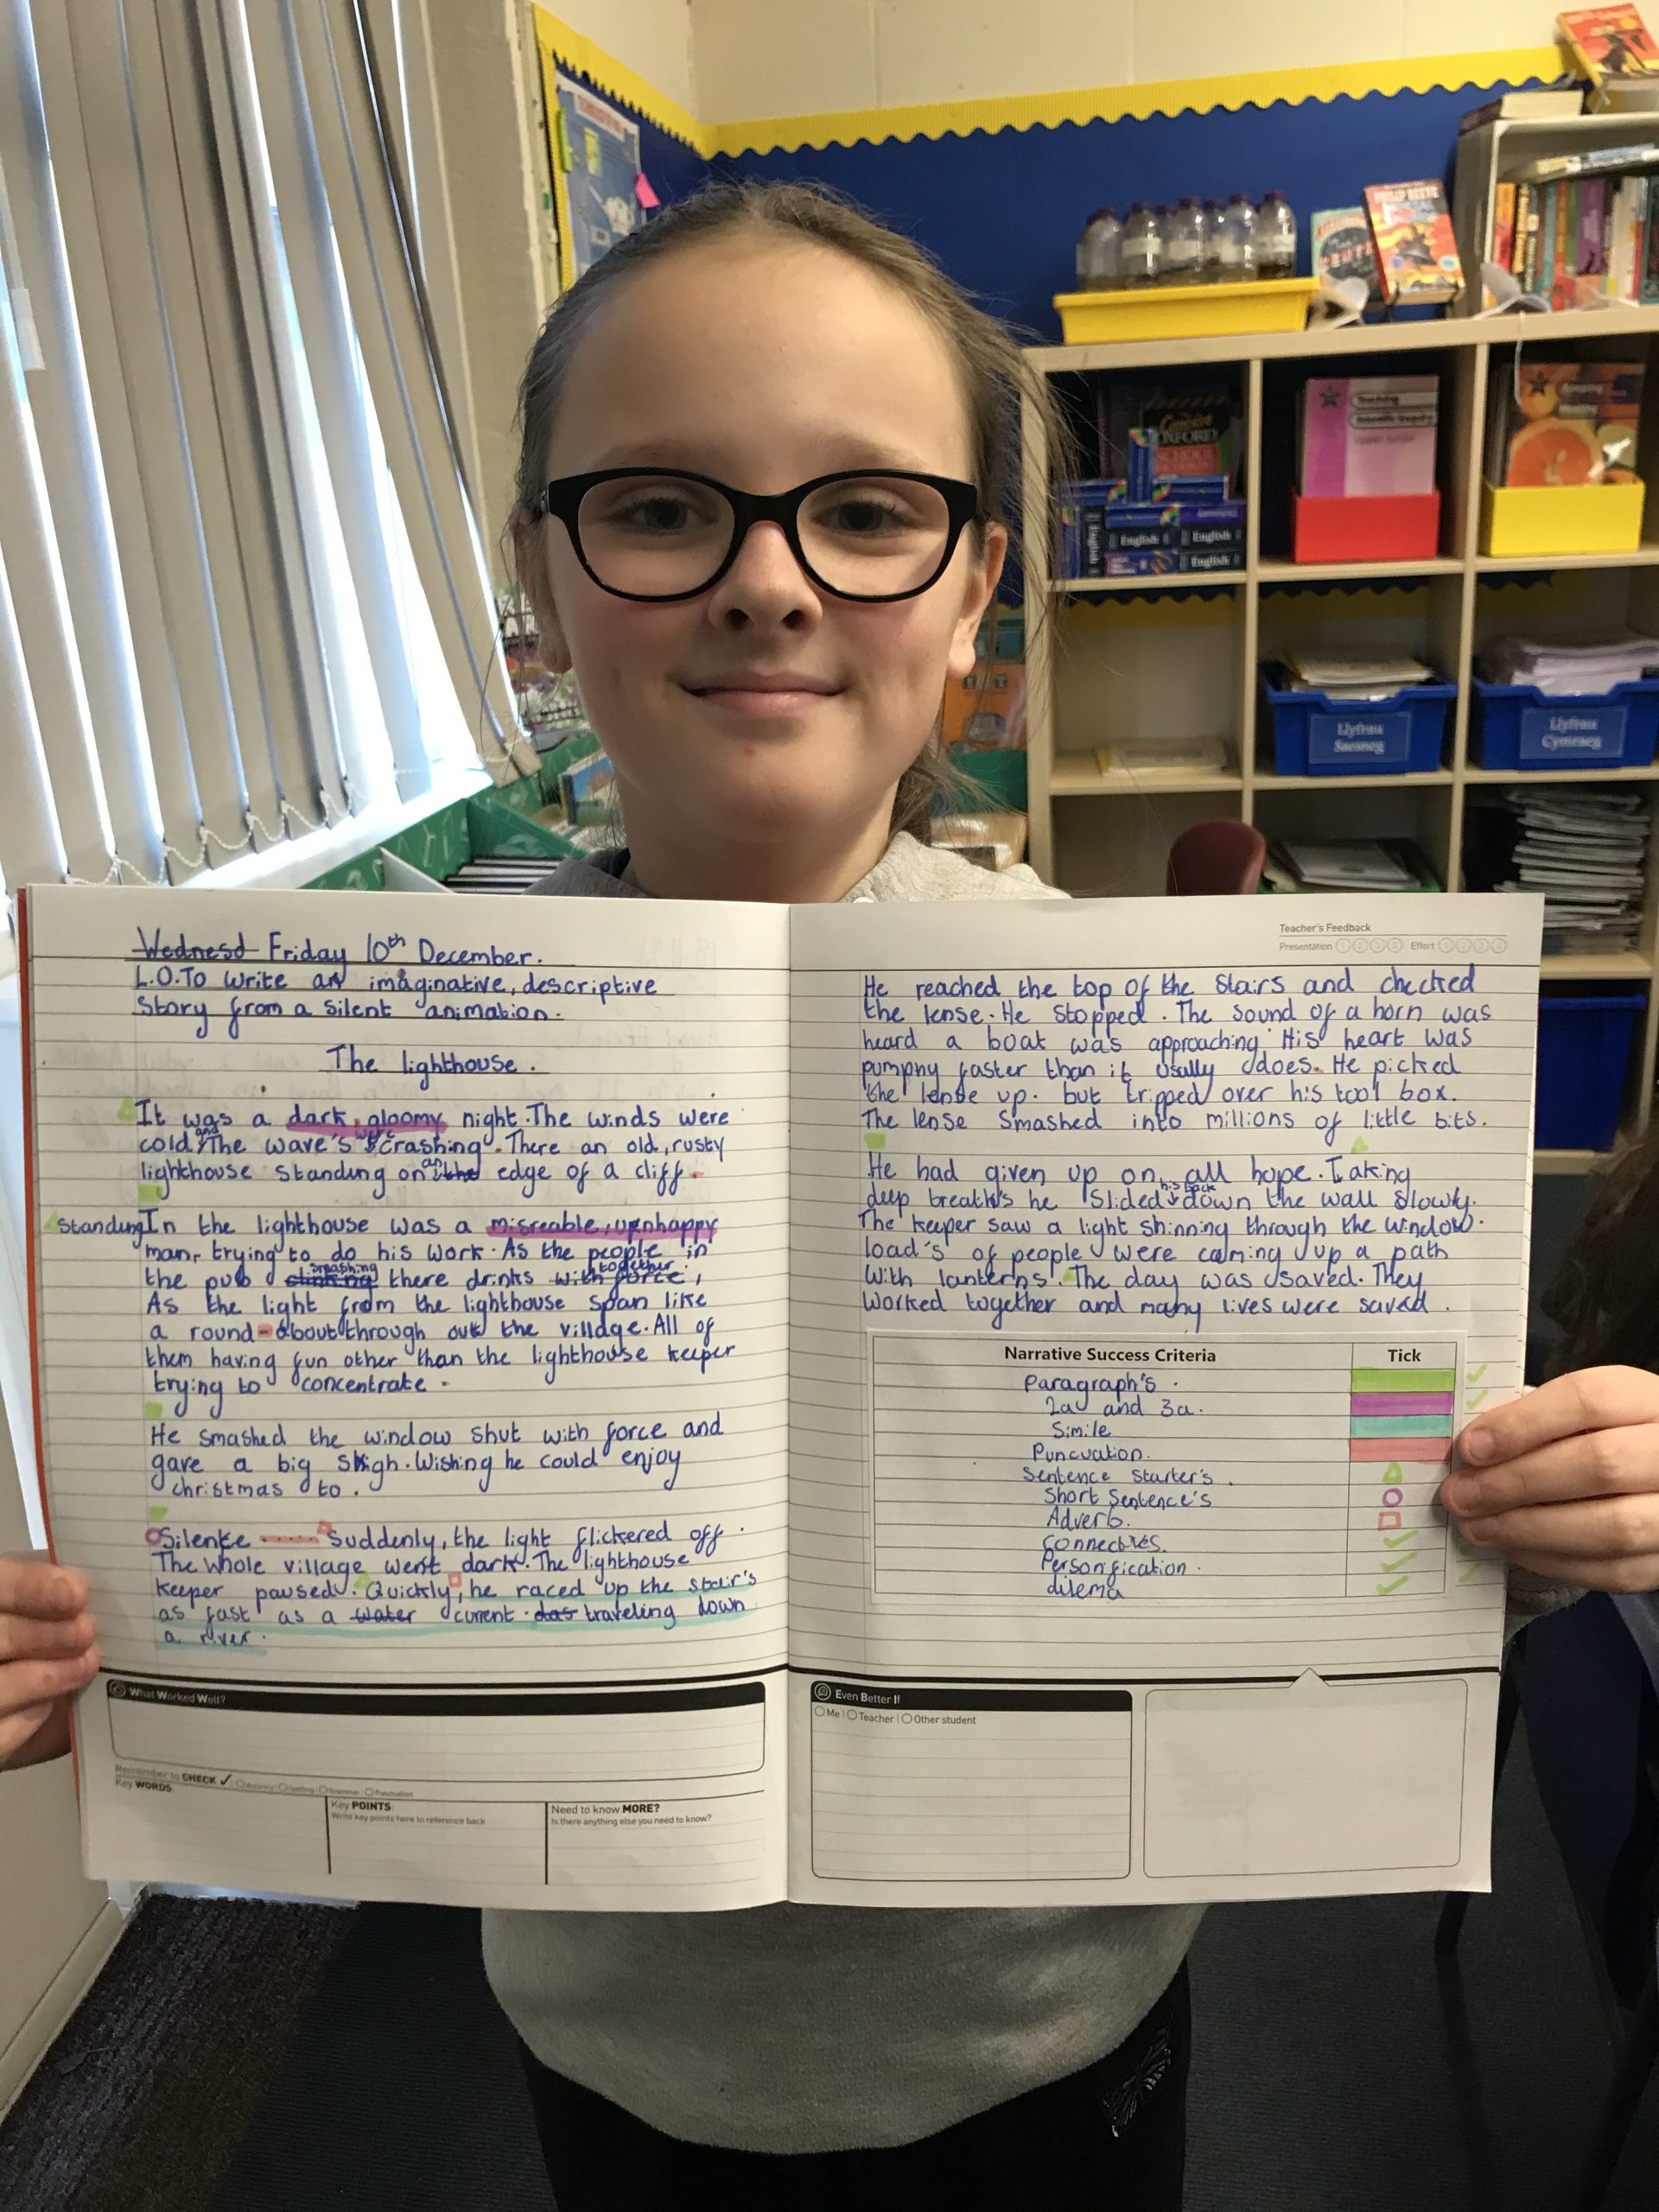 Wednesd Friday 10th December.
L.O.To write an imaginative, descriptive
Story from a silent animation.
The lighthouse.
It was a dark, gloomy night. The winds were
cold, and The wave's were crashing. There an old, rusty
lighthouse standing on an the edge of a cliff.
Standing In the lighthouse was a misreable, upnhappy
man, trying to do his work. As the people in
the pub clinking smashing there drinks with force together,
As the light from the lighthouse span like
a round-about through out the village. All of
them having fun other than the lighthouse keeper
trying to concentrate.
He smashed the window shut with force and
gave a big sigh. Wishing he could enjoy
christmas to.
Silence ...... Suddenly, the light flickered off.
The whole village went dark. The lighthouse
keeper paused. Quickly, he raced up the stair's
as fast as a water current. das traveling down
a river.
What Worked Well?
Remember to CHECK
Key WORDS
Key POINTS:
Write key points here to reference back
Need to know MORE?
Is there anything else you need to know?
Teacher's Feedback
Presentation 1 2 3 4 Effort 1 2 3 4
He reached the top of the stairs and checked
the lense. He stopped. The sound of a horn was
heard a boat was approaching His heart was
pumpny faster than it usally does. He picked
the lense up. but tripped over his tool box.
The lense smashed into millions of little bits.
He had given up on all hope. Taking
deep breath's he slided his back down the wall slowly.
The keeper saw a light shinning through the window.
load's of people were coming up a path
with lanterns. The day was saved. They
worked together and many lives were saved.
Narrative Success Criteria Tick
Paragraph's.
2a and 3a.
Simile
Puncuation.
Sentence starter's.
Short Sentence's
Adverb.
Connectives.
Personification.
dilema
Even Better If
Me | Teacher | Other student
Concise
OXFORD
SCHOOL
English
English
English
English
Teaching
Scientific Enquiry
Upper Junior
Llyfrau
Saesneg
Llyfrau
Cymraeg